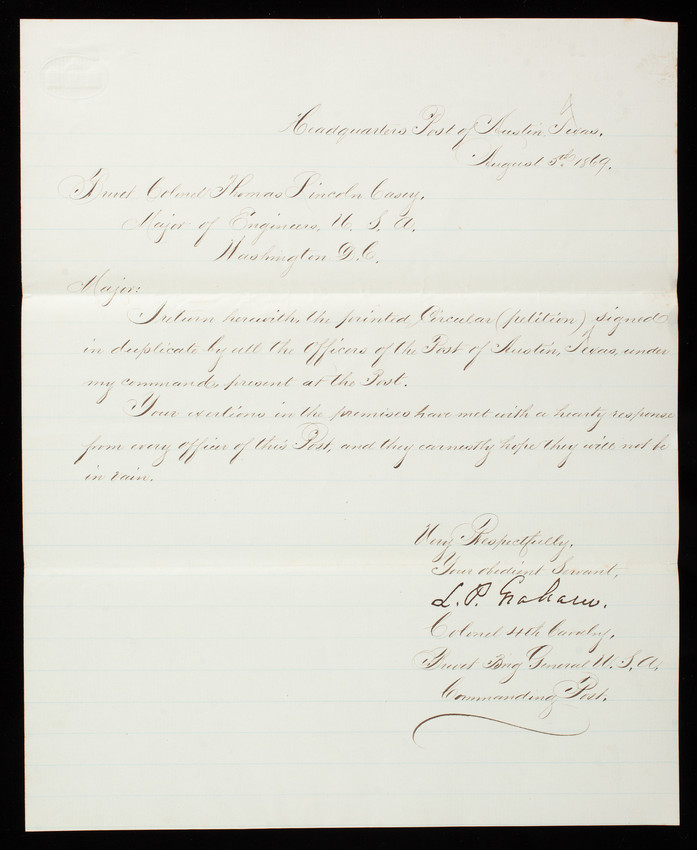 Headquarters Post of Austin, Texas.
August 5th. 1869.
Brevet Colonel Thomas Lincoln Casey,
Major of Engineers, U. S. A.
Washington D.C.
Major:
I return herewith, the printed Circular (petition) signed
in duplicate by all the Officers of the Post of Austin, Texas, under
my command, present at the Post.
Your exertions in the premises have met with a hearty response
from every officer of this Post, and they earnestly hope they will not be
in vain.
Very Respectfully,
Your obedient Servant,
L. P. Graham.
Colonel 4th Cavalry,
Brevet Brig General U. S. A.
Commanding Post.